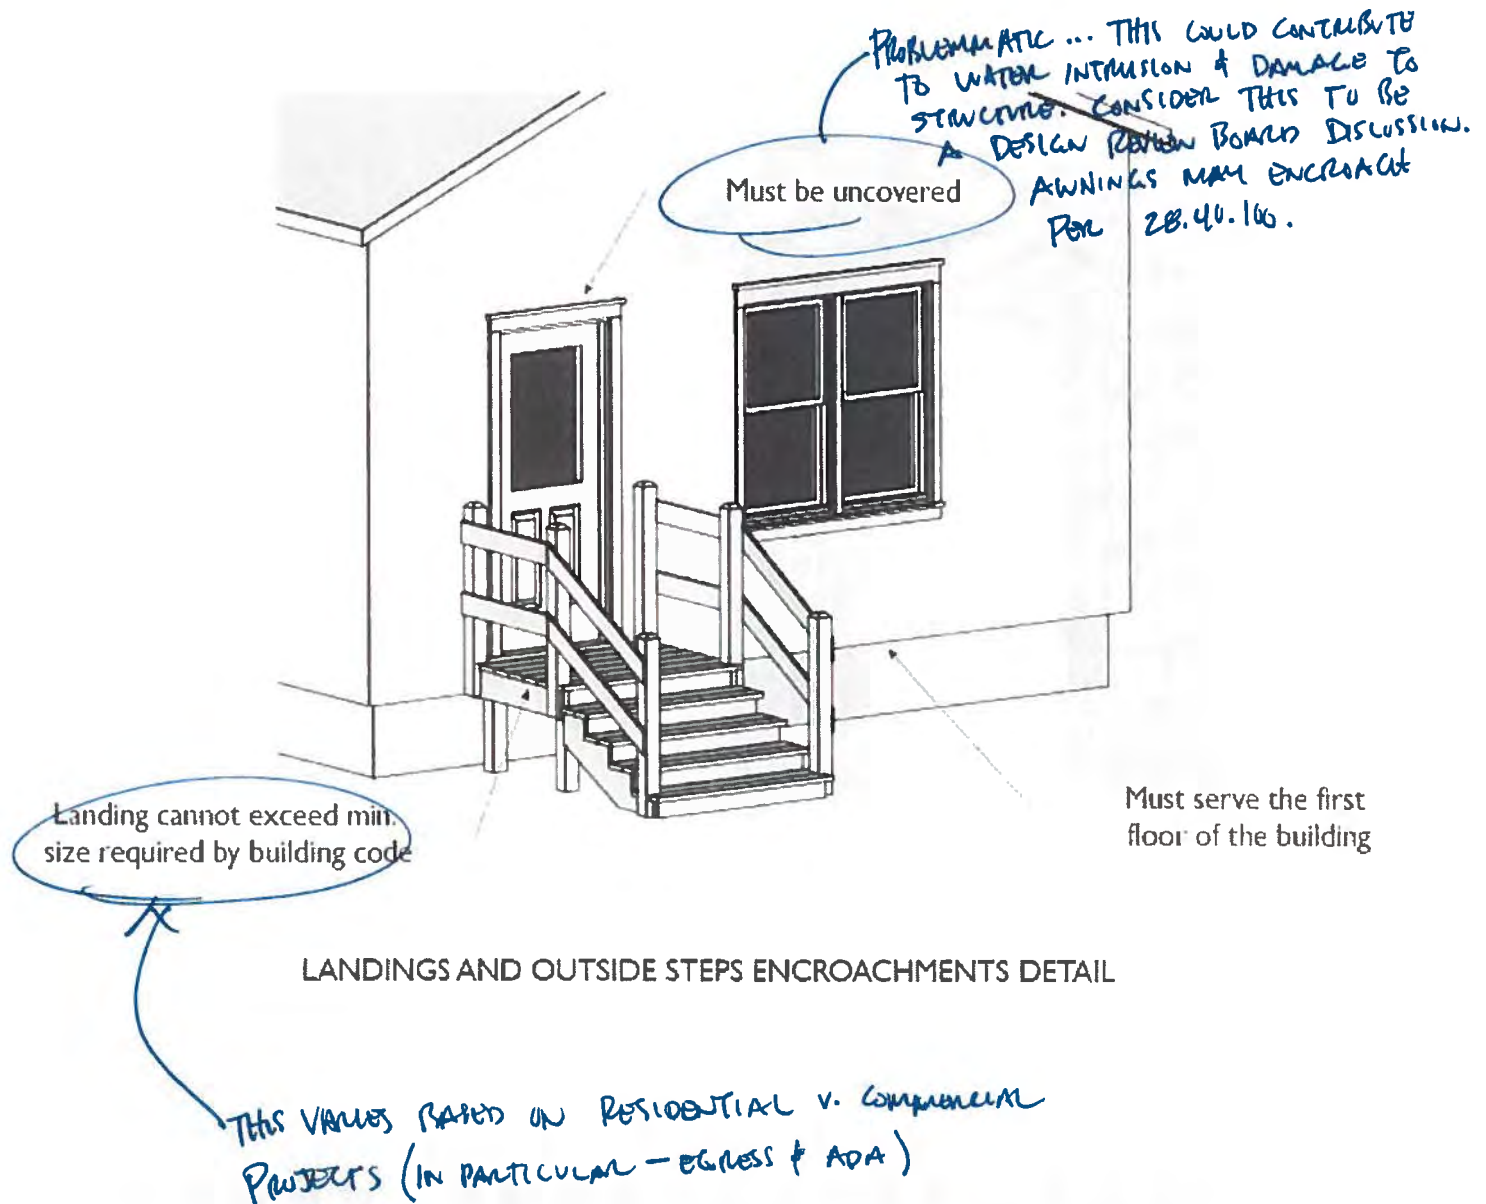 PROBLEMMATIC ... THIS COULD CONTRIBUTE
TO WATER INTRUSION & DAMAGE TO
STRUCTURE. CONSIDER THIS TO BE
A DESIGN REVIEW BOARD DISCUSSION.
AWNINGS MAY ENCROACH
PER 28.40.100.
Must be uncovered
Landing cannot exceed min.
size required by building code
Must serve the first
floor of the building
LANDINGS AND OUTSIDE STEPS ENCROACHMENTS DETAIL
THIS VARIES BASED ON RESIDENTIAL V. COMMERCIAL
PROJECTS (IN PARTICULAR - EGRESS & ADA)